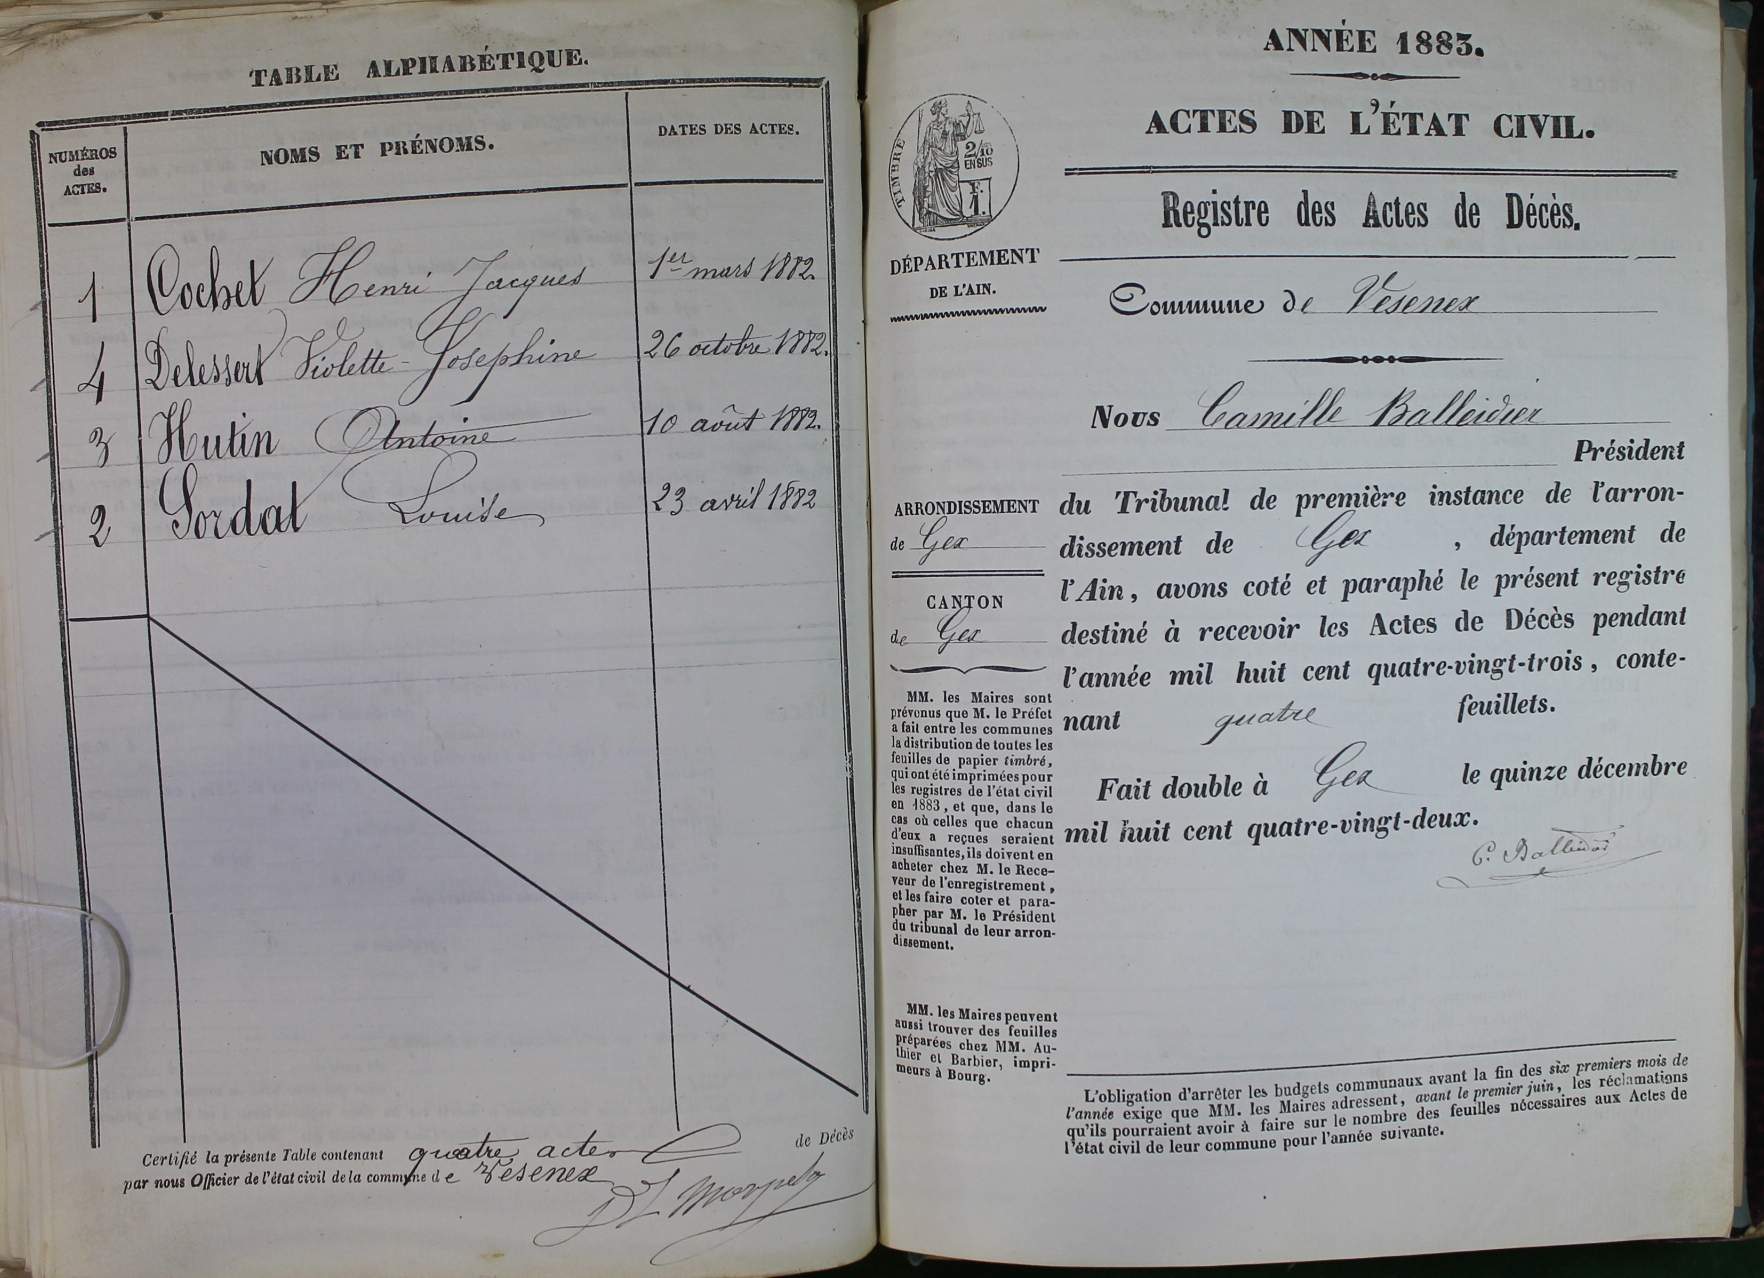 TABLE ALPHABÉTIQUE.
NUMÉROS
des
ACTES.
NOMS ET PRÉNOMS.
DATES DES ACTES.
1 Cochet Henri Jacques 1er mars 1882.
4 Delessert Violette-Josephine 26 octobre 1882.
3 Hutin Antoine 10 août 1882.
2 Sordat Louise 23 avril 1882
Certifié la présente Table contenant quatre actes de Décès
par nous Officier de l'état civil de la commune de Vesenex
ANNÉE 1883.
ACTES DE L'ÉTAT CIVIL.
TIMBRE
2/10
EN SUS
F.
1.
Registre des Actes de Décès.
DÉPARTEMENT
DE L'AIN.
Commune de Vesenex
Nous Camille Balleidier
Président
ARRONDISSEMENT
de Gex
CANTON
de Gex
du Tribunal de première instance de l'arron-
dissement de Gex, département de
l'Ain, avons coté et paraphé le présent registre
destiné à recevoir les Actes de Décès pendant
l'année mil huit cent quatre-vingt-trois, conte-
nant quatre feuillets.
Fait double à Gex le quinze décembre
mil huit cent quatre-vingt-deux.
C. Balleidier
MM. les Maires sont
prévenus que M. le Préfet
a fait entre les communes
la distribution de toutes les
feuilles de papier timbré,
qui ont été imprimées pour
les registres de l'état civil
en 1883, et que, dans le
cas où celles que chacun
d'eux a reçues seraient
insuffisantes, ils doivent en
acheter chez M. le Rece-
veur de l'enregistrement,
et les faire coter et para-
pher par M. le Président
du tribunal de leur arron-
dissement.
MM. les Maires peuvent
aussi trouver des feuilles
préparées chez MM. Au-
thier et Barbier, impri-
meurs à Bourg.
L'obligation d'arrêter les budgets communaux avant la fin des six premiers mois de
l'année exige que MM. les Maires adressent, avant le premier juin, les réclamations
qu'ils pourraient avoir à faire sur le nombre des feuilles nécessaires aux Actes de
l'état civil de leur commune pour l'année suivante.